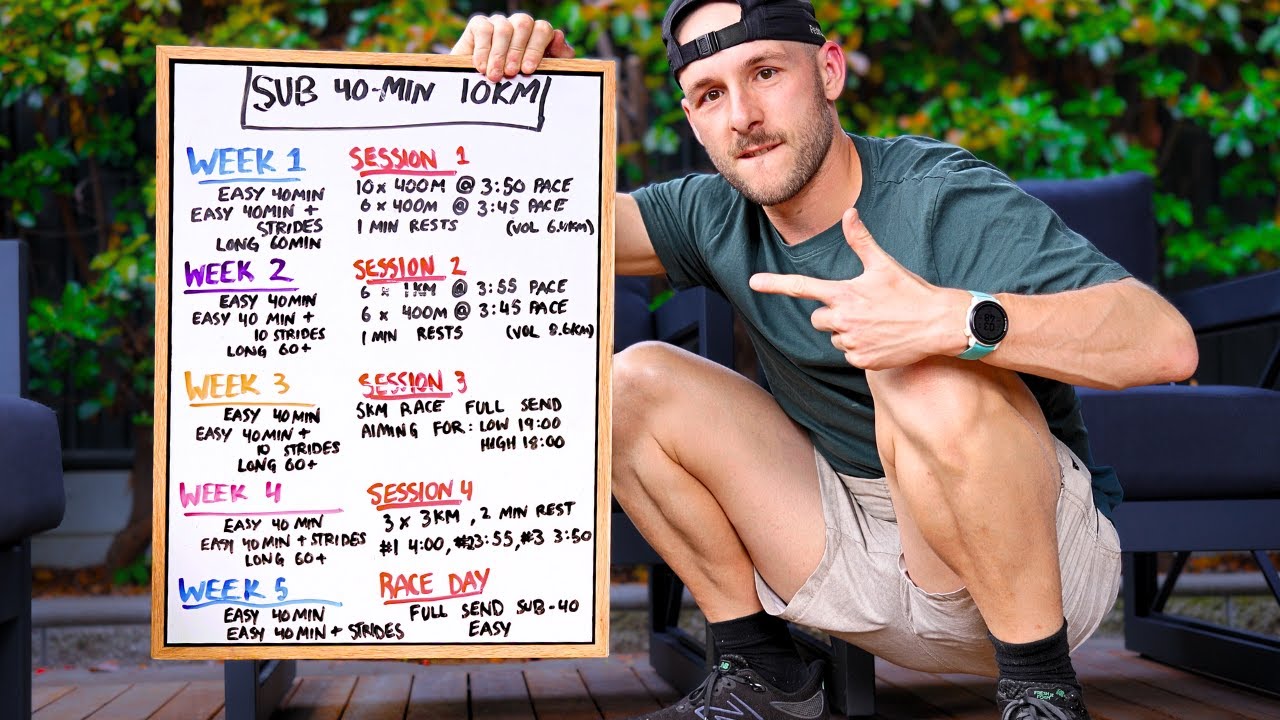 SUB 40-MIN 10KM
WEEK 1
EASY 40MIN
EASY 40MIN +
STRIDES
LONG 60MIN
SESSION 1
10 x 400M @ 3:50 PACE
6 x 400M @ 3:45 PACE
1 MIN RESTS (VOL 6.4KM)
WEEK 2
EASY 40MIN
EASY 40 MIN +
10 STRIDES
LONG 60+
SESSION 2
6 x 1KM @ 3:55 PACE
6 x 400M @ 3:45 PACE
1 MIN RESTS (VOL 8.6KM)
WEEK 3
EASY 40MIN
EASY 40MIN +
10 STRIDES
LONG 60+
SESSION 3
5KM RACE FULL SEND
AIMING FOR: LOW 19:00
HIGH 18:00
WEEK 4
EASY 40 MIN
EASY 40MIN + STRIDES
LONG 60+
SESSION 4
3 x 3KM, 2 MIN REST
#1 4:00, #2 3:55, #3 3:50
WEEK 5
EASY 40MIN
EASY 40MIN + STRIDES
RACE DAY
FULL SEND SUB-40
EASY